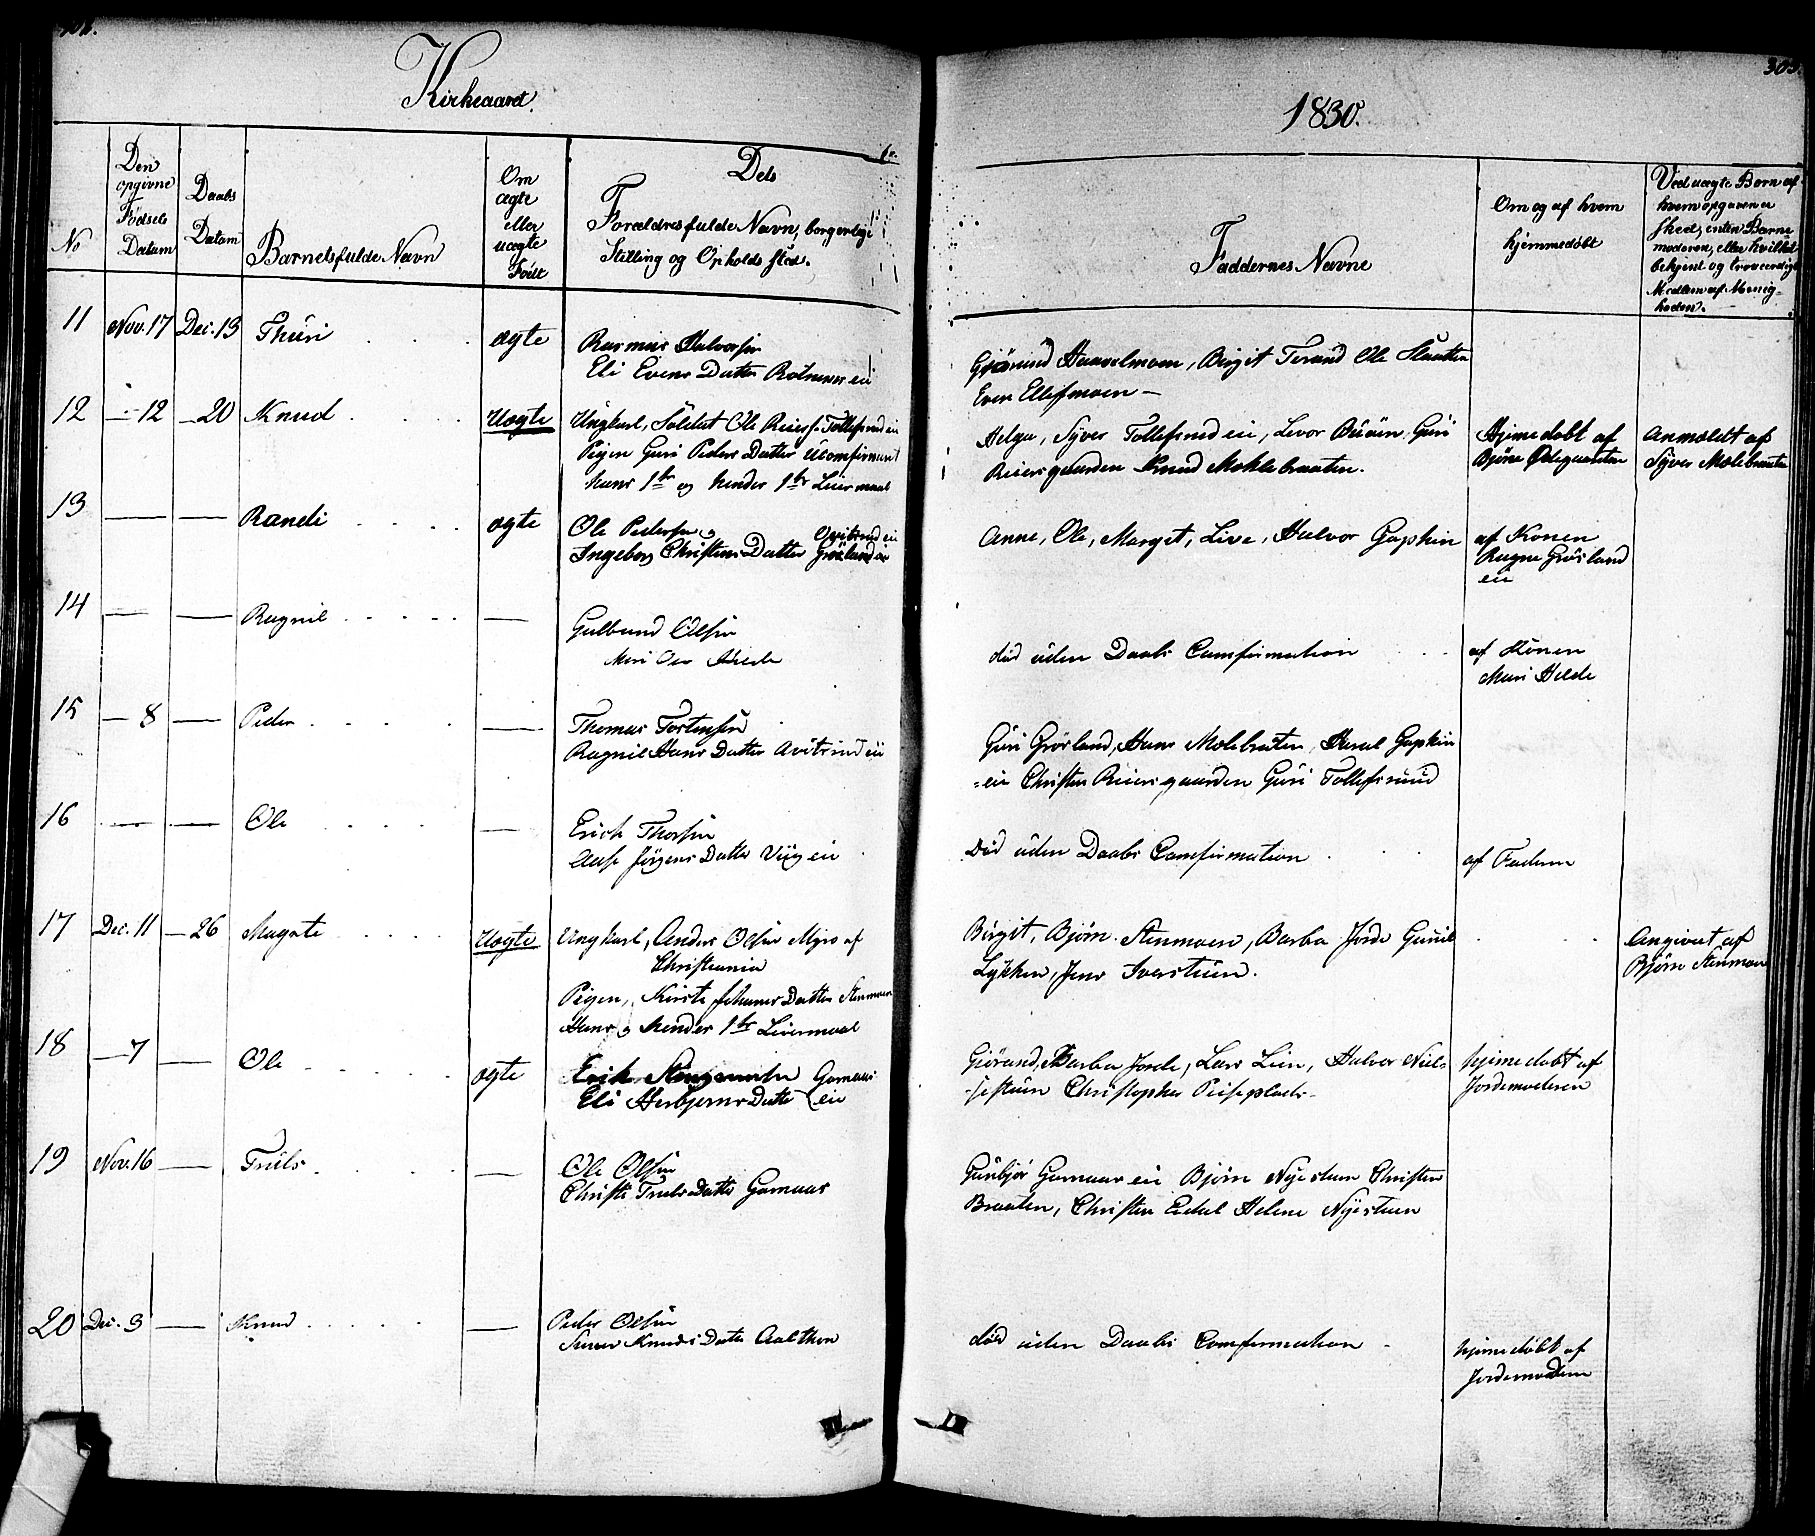 Kirkeaaret
1830.
303.
No
Den opgivne Fødsels Datum
Daabs Datum
Barnets fulde Navn
Om ægte eller uægte Født
Dets Forældres fulde Navn, borgerlige Stilling og Opholds sted.
Faddernes Navne
Om og af hvem hjemmedøbt
Ved uægte Børn af hvem opgaven er skeed, enten Barne moderen, eller hvilket bekjent og troværdigt Medlem af Menigheden.
11 Nov. 17 Dec. 13 Thuri ægte
Rasmus Halvorsen
Eli Evens Datter
Birgit Ole
Even Ellefsmoen
12 12 20 Knud Uægte
Ungkarl, Soldat Ole Reiers. Tollefsrud eie
Pigen Guri Peders Datter
hans 1ste og hendes 1ste Leiermaal
Helga, Syver Tollefsrud eie, Levor Guri
Reiersgaarden Knud Molebraaten.
Hjemedøbt af
Bjørn Ødegaarden
Anmældt af
Syver Molebraaten
13 Randi ægte
Ole Pedersen
Ingeborg Christens Datter Grøsland eie
Anne, Ole, Marget, Live, Halvor Gapkin
af Konen
Ragne Grøsland
eie
14 Ragnil
Gulbrand Olsen
død uden Daabs Comfirmation
af Konen
Mari Helde
15 8 Peder
Thomas Tostensen
Ragnil Hans Datter eie
Guri Grøsland, Hans Molebraten, Gapkin
eie Christen Reiersgaarden Guri Tollefsrud
16 Ole
Erich Thorsen
Aase Jørgens Datter Viig eie
Død uden Daabs Comfirmation
af Faderen
17 Dec. 11 26 Magrte Uægte
Ungkarl, Anders Olsen Myro af
Christiania
Pigen, Kirste Johannes Datter Stenmoen
Hans og hendes 1ste Leiermaal
Birgit, Bjørn Stenmoen, Barbo Jorde Gunil
Lykken, Jens Iverstuen.
Angivet af
Bjørn Stenmoen
18 7 Ole ægte
Erik Gamaas
Eli Herbjørns Datter eie
Gjørand, Barbo Jorde, Lars Lien, Halvor Niels-
-sestuen Christopher
hjemedøbt af
Jordemoderen
19 Nov. 16 Truls
Ole Olsen
Christi Truls Datter Gamaas
Gunbjør Gamaas eie Bjørn Nyestuen Christen
Braaten, Christen Helene Nyestuen
20 Dec. 3 Knud
Peder Olsen
Knuds Datter
død uden Daabs Comfirmation
hjemedøbt af
Jordemoderen